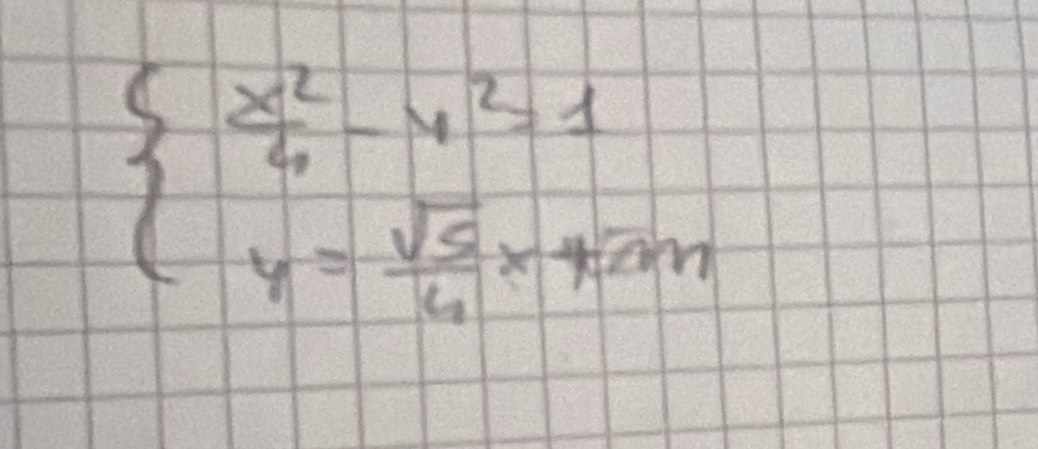 x²/4 - y² = 1
y = √5/4 x +